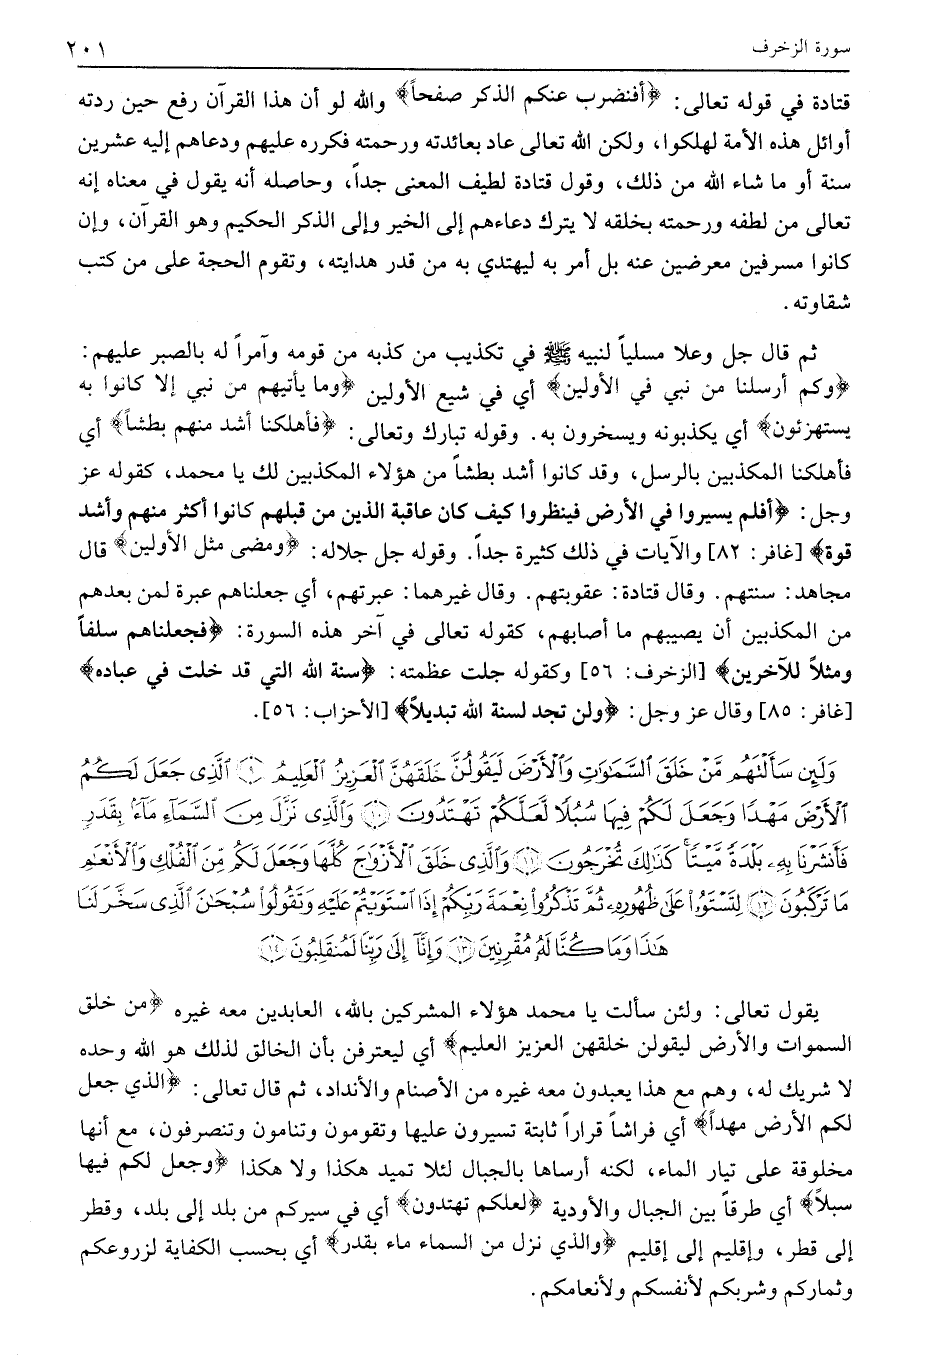 سورة الزخرف ٢٠١
قتادة في قوله تعالى: ﴿أفنضرب عنكم الذكر صفحاً﴾ والله لو أن هذا القرآن رفع حين ردته
أوائل هذه الأمة لهلكوا، ولكن الله تعالى عاد بعائدته ورحمته فكرره عليهم ودعاهم إليه عشرين
سنة أو ما شاء الله من ذلك، وقول قتادة لطيف المعنى جداً، وحاصله أنه يقول في معناه إنه
تعالى من لطفه ورحمته بخلقه لا يترك دعاءهم إلى الخير وإلى الذكر الحكيم وهو القرآن، وإن
كانوا مسرفين معرضين عنه بل أمر به ليهتدي به من قدر هدايته، وتقوم الحجة على من كتب
شقاوته.
ثم قال جل وعلا مسلياً لنبيه ﷺ في تكذيب من كذبه من قومه وآمراً له بالصبر عليهم:
﴿وكم أرسلنا من نبي في الأولين﴾ أي في شيع الأولين ﴿وما يأتيهم من نبي إلا كانوا به
يستهزئون﴾ أي يكذبونه ويسخرون به. وقوله تبارك وتعالى: ﴿فأهلكنا أشد منهم بطشاً﴾ أي
فأهلكنا المكذبين بالرسل، وقد كانوا أشد بطشاً من هؤلاء المكذبين لك يا محمد، كقوله عز
وجل: ﴿أفلم يسيروا في الأرض فينظروا كيف كان عاقبة الذين من قبلهم كانوا أكثر منهم وأشد
قوة﴾ [غافر: ٨٢] والآيات في ذلك كثيرة جداً. وقوله جل جلاله: ﴿ومضى مثل الأولين﴾ قال
مجاهد: سنتهم. وقال قتادة: عقوبتهم. وقال غيرهما: عبرتهم، أي جعلناهم عبرة لمن بعدهم
من المكذبين أن يصيبهم ما أصابهم، كقوله تعالى في آخر هذه السورة: ﴿فجعلناهم سلفاً
ومثلاً للآخرين﴾ [الزخرف: ٥٦] وكقوله جلت عظمته: ﴿سنة الله التي قد خلت في عباده﴾
[غافر: ٨٥] وقال عز وجل: ﴿ولن تجد لسنة الله تبديلاً﴾ [الأحزاب: ٥٦].
وَلَئِن سَأَلْتَهُم مَّنْ خَلَقَ ٱلسَّمَٰوَٰتِ وَٱلْأَرْضَ لَيَقُولُنَّ خَلَقَهُنَّ ٱلْعَزِيزُ ٱلْعَلِيمُ ﴿٩﴾ ٱلَّذِى جَعَلَ لَكُمُ
ٱلْأَرْضَ مَهْدًا وَجَعَلَ لَكُمْ فِيهَا سُبُلًا لَّعَلَّكُمْ تَهْتَدُونَ ﴿١٠﴾ وَٱلَّذِى نَزَّلَ مِنَ ٱلسَّمَآءِ مَآءًۢ بِقَدَرٍ
فَأَنشَرْنَا بِهِۦ بَلْدَةً مَّيْتًا ۚ كَذَٰلِكَ تُخْرَجُونَ ﴿١١﴾ وَٱلَّذِى خَلَقَ ٱلْأَزْوَٰجَ كُلَّهَا وَجَعَلَ لَكُم مِّنَ ٱلْفُلْكِ وَٱلْأَنْعَٰمِ
مَا تَرْكَبُونَ ﴿١٢﴾ لِتَسْتَوُۥا۟ عَلَىٰ ظُهُورِهِۦ ثُمَّ تَذْكُرُوا۟ نِعْمَةَ رَبِّكُمْ إِذَا ٱسْتَوَيْتُمْ عَلَيْهِ وَتَقُولُوا۟ سُبْحَٰنَ ٱلَّذِى سَخَّرَ لَنَا
هَٰذَا وَمَا كُنَّا لَهُۥ مُقْرِنِينَ ﴿١٣﴾ وَإِنَّآ إِلَىٰ رَبِّنَا لَمُنقَلِبُونَ ﴿١٤﴾
يقول تعالى: ولئن سألت يا محمد هؤلاء المشركين بالله، العابدين معه غيره ﴿من خلق
السموات والأرض ليقولن خلقهن العزيز العليم﴾ أي ليعترفن بأن الخالق لذلك هو الله وحده
لا شريك له، وهم مع هذا يعبدون معه غيره من الأصنام والأنداد، ثم قال تعالى: ﴿الذي جعل
لكم الأرض مهداً﴾ أي فراشاً قراراً ثابتة تسيرون عليها وتقومون وتنامون وتنصرفون، مع أنها
مخلوقة على تيار الماء، لكنه أرساها بالجبال لئلا تميد هكذا ولا هكذا ﴿وجعل لكم فيها
سبلاً﴾ أي طرقاً بين الجبال والأودية ﴿لعلكم تهتدون﴾ أي في سيركم من بلد إلى بلد، وقطر
إلى قطر، وإقليم إلى إقليم ﴿والذي نزل من السماء ماء بقدر﴾ أي بحسب الكفاية لزروعكم
وثماركم وشربكم لأنفسكم ولأنعامكم.